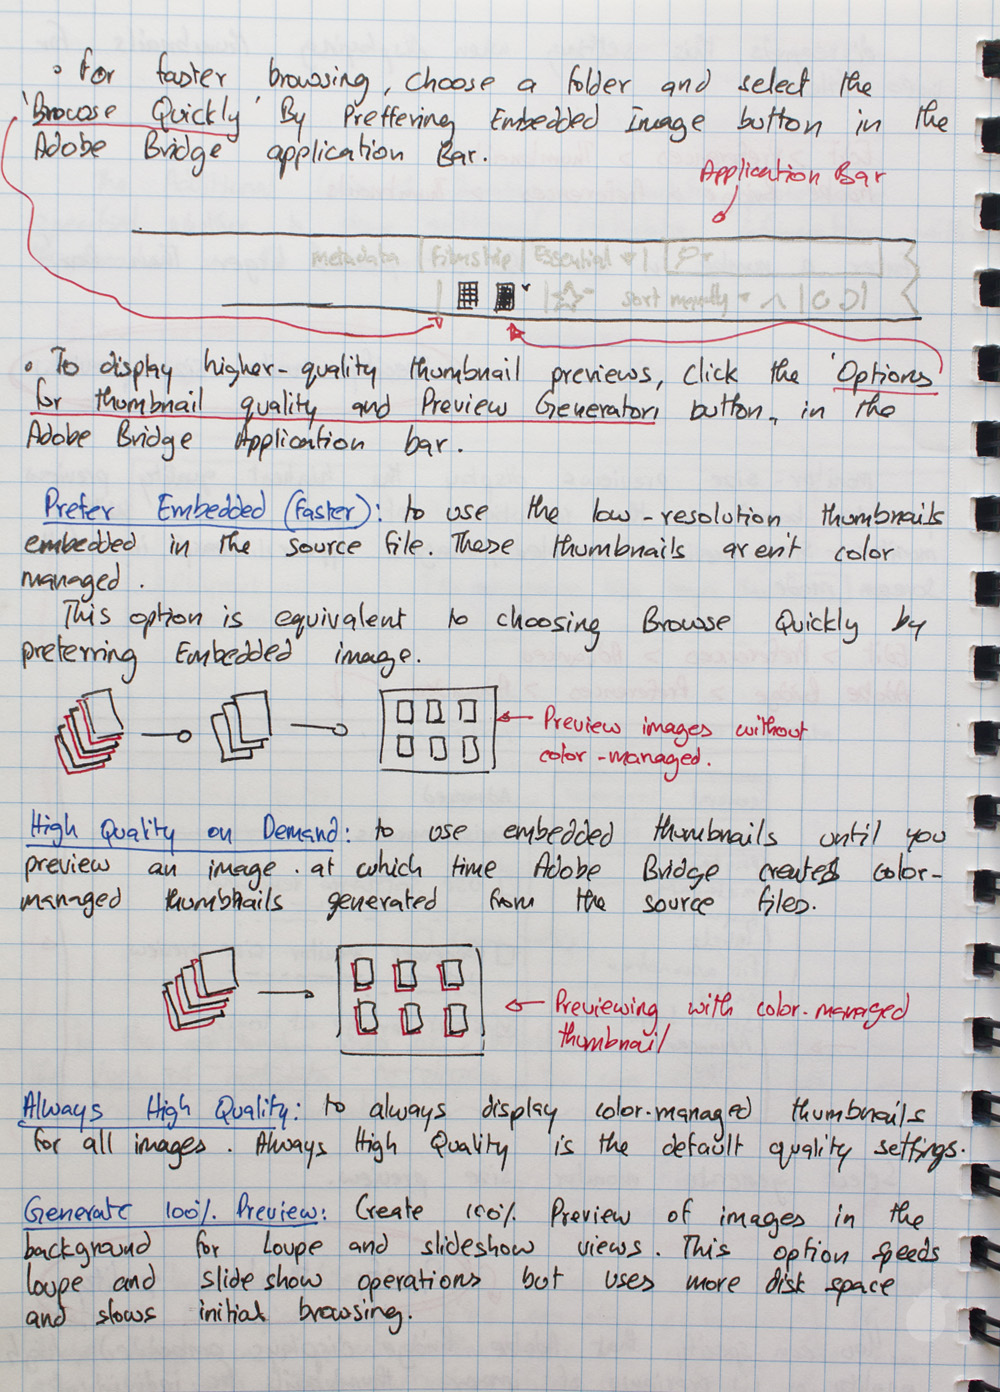 • For faster browsing, choose a folder and select the
'Browse Quickly' By Preffering Embedded Image button in the
Adobe Bridge application Bar.
Application Bar
metadata | Filmstrip | Essential ▾ |
| sort manually ▾
• To display higher-quality thumbnail previews, click the 'Options
for thumbnail quality and Preview Generator, button, in the
Adobe Bridge Application bar.
Prefer Embedded (Faster): to use the low-resolution thumbnails
embedded in the source file. These thumbnails aren't color
managed.
This option is equivalent to choosing Browse Quickly by
preferring Embedded image.
Preview images without
color-managed.
High Quality on Demand: to use embedded thumbnails until you
preview an image. at which time Adobe Bridge creates color-
managed thumbnails generated from the source files.
Previewing with color-managed
thumbnail
Always High Quality: to always display color-managed thumbnails
for all images. Always High Quality is the default quality settings.
Generate 100% Preview: Create 100% Preview of images in the
background for Loupe and slideshow views. This option speeds
loupe and slide show operations but uses more disk space
and slows initial browsing.